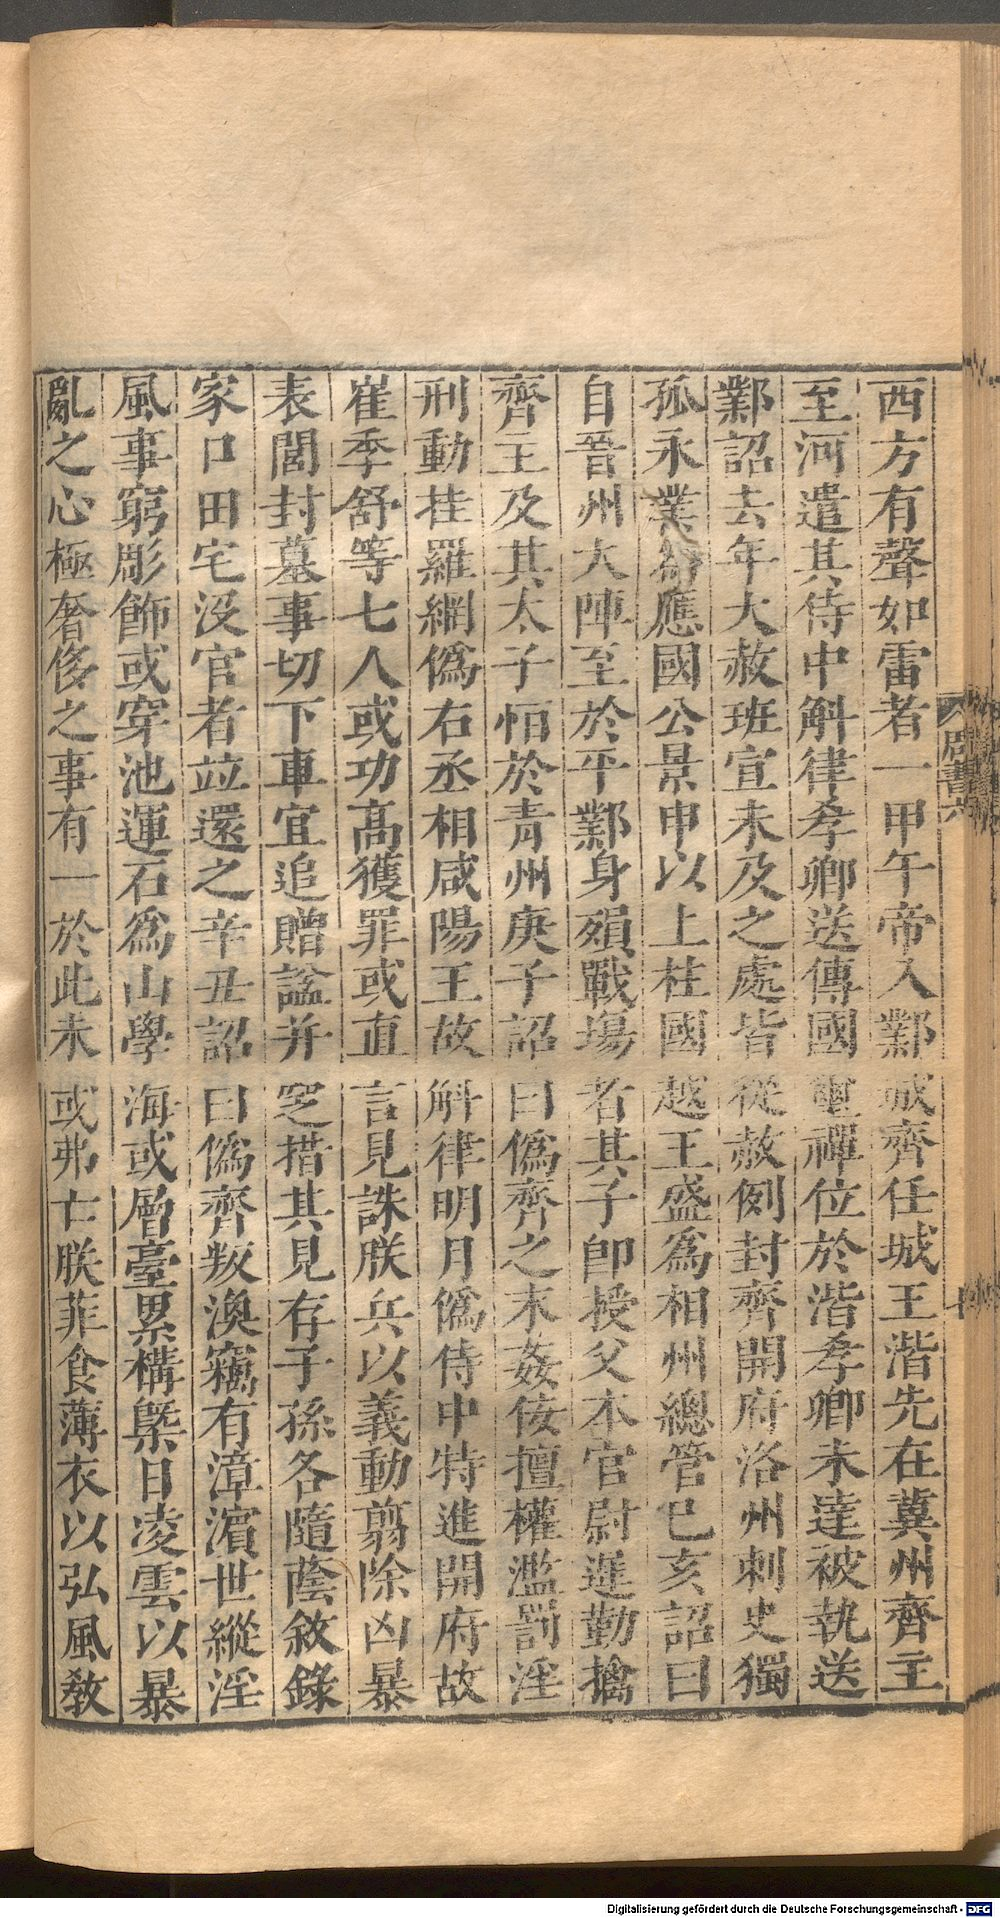 西方有聲如雷者一甲午帝入鄴城齊任城王湝先在冀州齊主
至河遣其侍中斛律孝卿送傳國璽禪位於湝孝卿未達被執送
鄴詔去年大赦班宣未及之處皆從赦例封齊開府洛州刺史獨
孤永業爲應國公景申以上柱國越王盛爲相州總管巳亥詔曰
自晉州大陣至於平鄴身殞戰場者其子卽授父本官尉遲勤擒
齊主及其太子恒於青州庚子詔曰僞齊之末姦佞擅權濫罰淫
刑動挂羅網僞右丞相咸陽王故斛律明月僞侍中特進開府故
崔季舒等七人或功高獲罪或直言見誅朕兵以義動翦除凶暴
表閭封墓事切下車宜追贈諡并窆措其見存子孫各隨蔭敘錄
家口田宅沒官者竝還之辛丑詔曰僞齊叛渙竊有漳濱世縱淫
風事窮彫飾或穿池運石爲山學海或層臺累構槩日凌雲以暴
亂之心極奢侈之事有一於此未或弗亡朕菲食薄衣以弘風敎
周書六
Digitalisierung gefördert durch die Deutsche Forschungsgemeinschaft - DFG